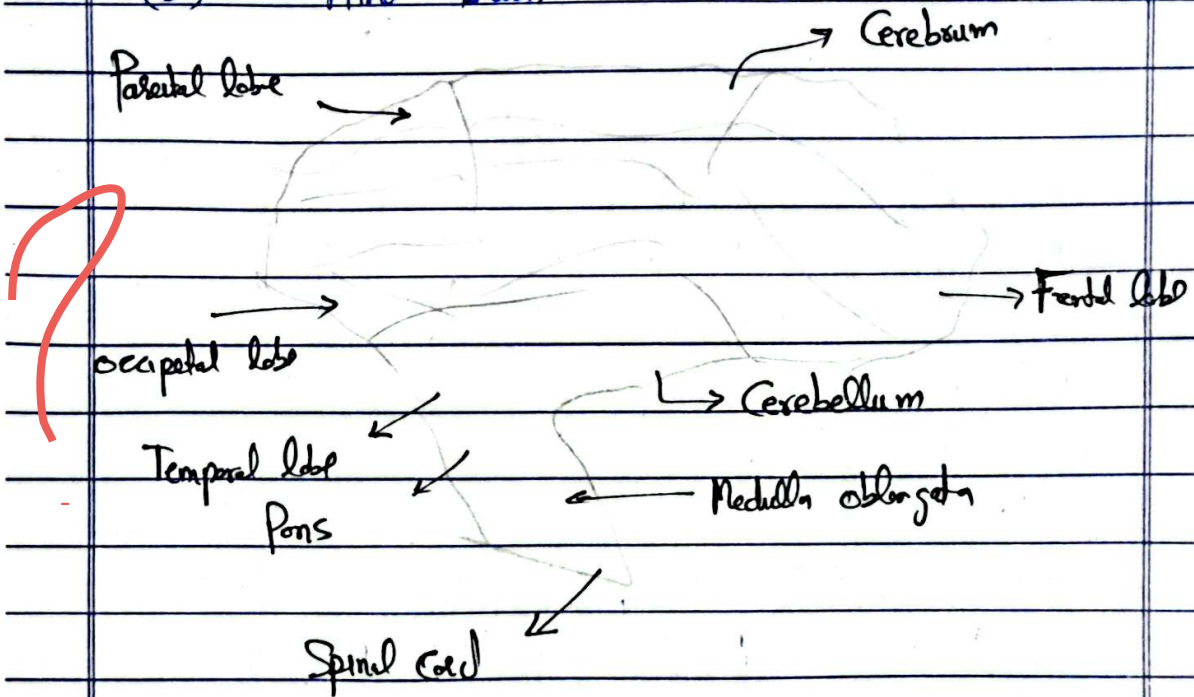 Cerebrum
Parietal lobe
Frontal lobe
occipetal lobe
Cerebellum
Temporal lobe
Medulla oblongata
Pons
Spinal cord